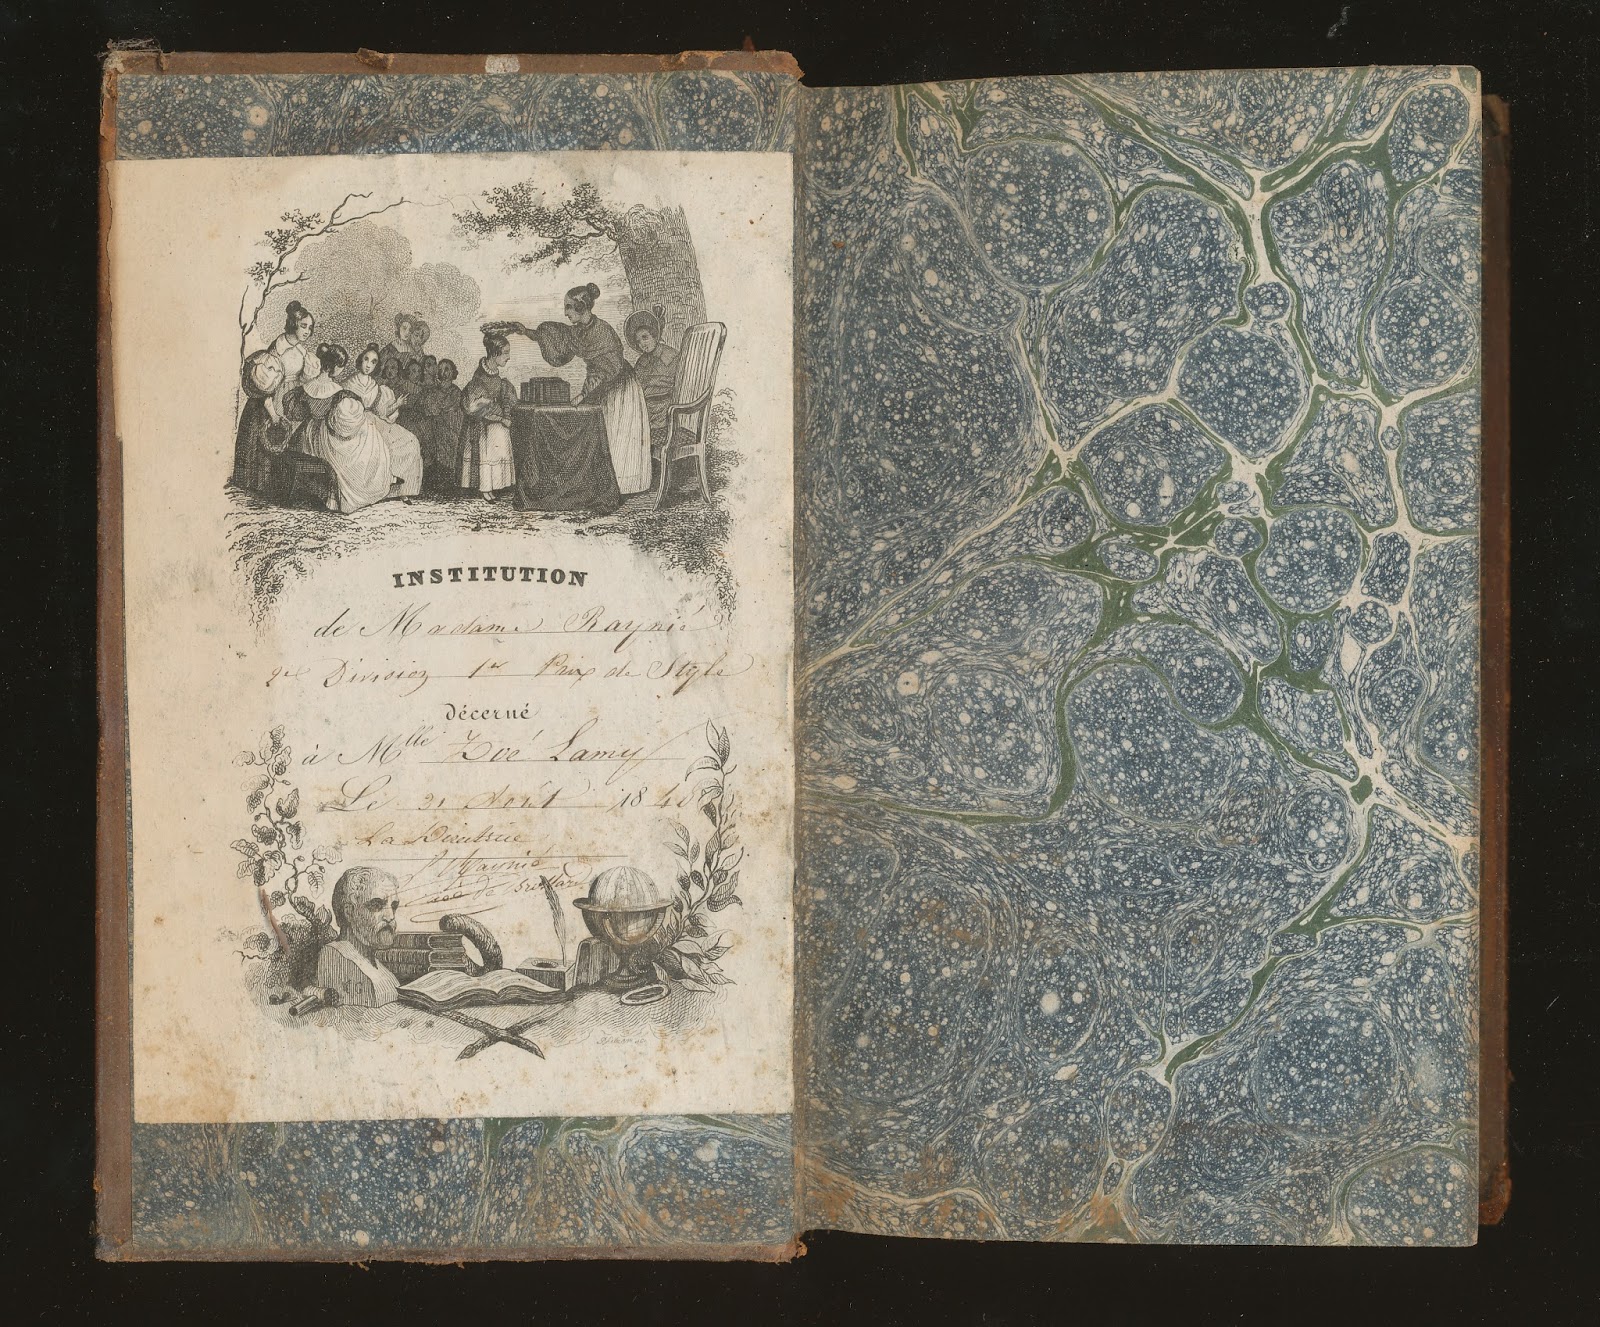 INSTITUTION
de Madame Raynié
2e Division 1er Prix de Style
décerné
à Mlle Zoé Lamy
Le 31 Août 184
La Directrice
Raynié
de